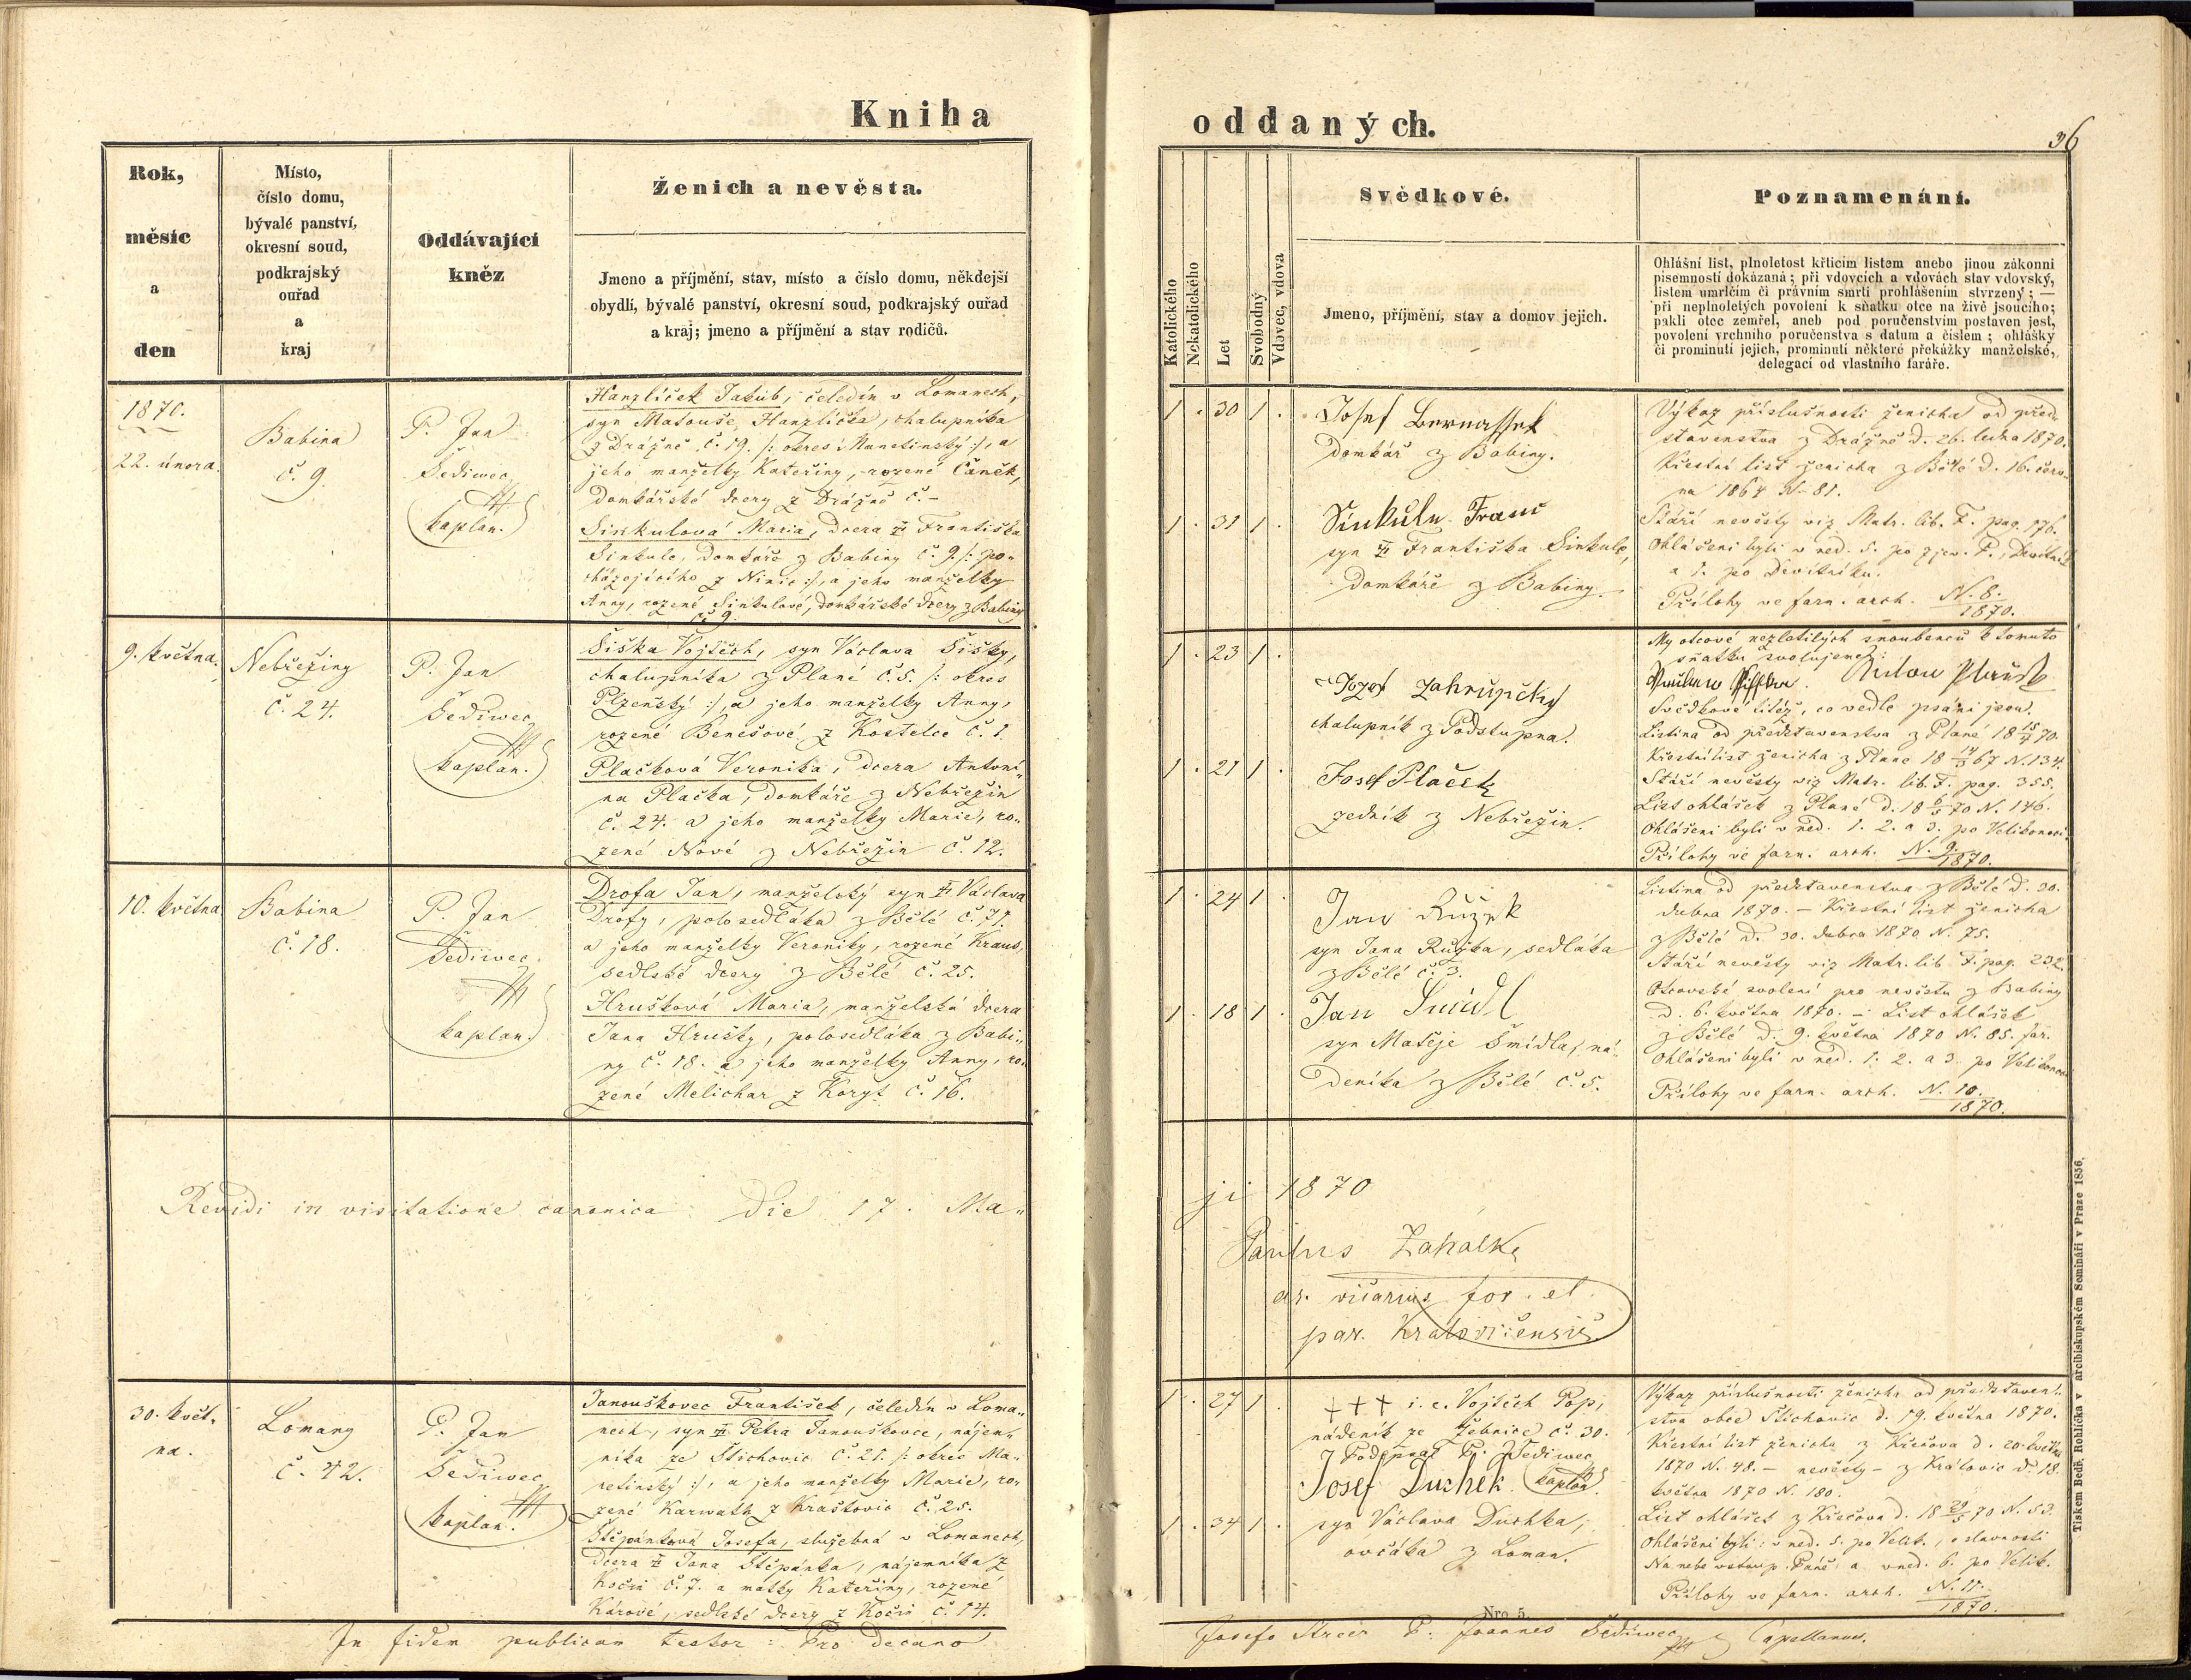 Kniha
Rok,
měsíc
a
den
Místo,
číslo domu,
bývalé panství,
okresní soud,
podkrajský
ouřad
a
kraj
Oddávající
kněz
Ženich a nevěsta.
Jmeno a příjmění, stav, místo a číslo domu, někdejší
obydlí, bývalé panství, okresní soud, podkrajský ouřad
a kraj; jmeno a příjmění a stav rodičů.
1870.
22. února.
Babina
č. 9.
P. Jan
Šediwec
kaplan.
Hanzlíček Jakub, čeledín v Lomanech,
syn Matouše Hanzlíčka, chalupníka
z Drážně č. 19. /: okres Manetinský :/, a
jeho manželky Kateřiny, rozené Čaněk,
domkářské dcery z Drážně č. –
Sinkulová Maria, dcera Františka
Sinkule, domkáře z Babiny č. 9. /: po-
cházejícího z Ninic :/, a jeho manželky
Anny, rozené Sinkulové, domkářské dcery z Babiny
č. 9.
9. května.
Nebřeziny
č. 24.
P. Jan
Šediwec
kaplan.
Šiška Vojtěch, syn Václava Šišky,
chalupníka z Plané č. 5. /: okres
Plzeňský :/, a jeho manželky Anny,
rozené Benešové z Kostelce č. 1.
Plačková Veronika, dcera Antoní-
na Plačka, domkáře z Nebřezin
č. 24. a jeho manželky Marie, ro-
zené Nové z Nebřezin č. 12.
10. května
Babina
č. 18.
P. Jan
Šediwec.
kaplan.
Drofa Jan, manželský syn Václava
Drofy, polosedláka z Bělé č. 71.
a jeho manželky Veroniky, rozené Kraus,
sedlské dcery z Bělé č. 25.
Hrušková Maria, manželská dcera
Jana Hrušky, polosedláka z Babi-
ny č. 18. a jeho manželky Anny, ro-
zené Melichar z Koryt č. 16.
Revidi in visitatione canonica die 17. Ma-
30. květ-
na.
Lomany
č. 42.
P. Jan
Šediwec
kaplan.
Janouškovec František, čeledín v Loma-
nech, syn Petra Janouškovce, nájem-
níka ze Štichovic č. 21. /: okres Ma-
netinský :/, a jeho manželky Marie, ro-
zené Karwath z Kraškovic č. 25.
Štěpánková Josefa, služebná v Lomanech,
dcera Jana Štěpánka, nájemníka z
Kočín č. 7. a matky Kateřiny, rozené
Kárové, sedlské dcery z Kočín č. 14.
In fidem publicam testor: Pro decano
oddaných.
36
Katolického
Nekatolického
Let
Svobodný
Vdovec, vdova
Svědkové.
Jmeno, příjmění, stav a domov jejich.
Poznamenání.
Ohlášní list, plnoletost křticím listem anebo jinou zákonní
písemností dokázaná; při vdovcích a vdovách stav vdovský,
listem umrlčím či právním smrti prohlášením stvrzený; —
při neplnoletých povolení k sňatku otce na živě jsoucího;
pakli otec zemřel, aneb pod poručenstvím postaven jest,
povolení vrchního poručenstva s datum a číslem; ohlášky
či prominutí jejich, prominutí některé překážky manželské,
delegací od vlastního faráře.
1 . 30 1 .
Josef Bernassek
domkář z Babiny.
1 . 31 1 .
Sinkule Franc
syn Františka Sinkule,
domkáře z Babiny.
Výkaz příslušnosti ženicha od před-
stavenstva z Drážně d. 26. ledna 1870.
Křestní list ženicha z Bělé d. 16. červ-
na 1864 N. 81.
Stáří nevěsty viz Matr. lib. F. pag. 176.
Ohlášeni byli v ned. 5. po zjev. P., Devítník
a 1. po Devítníku.
Přílohy ve farn. arch. N. 8.
1870.
1 . 23 1 .
Jozef Zahrupčky
chalupník z Podstupna.
1 . 21 1 .
Josef Plaček
zedník z Nebřezin.
My otcové nezletilých snoubenců k tomuto
sňatku svolujeme:
Anton Plaček
Svědkové titéž, co vedle psáni jsou.
Listina od představenstva z Plané 18 15/4 70.
Křestní list ženicha z Plané 18 14/5 67 N. 134.
Stáří nevěsty viz Matr. lib. F. pag. 355.
List ohlášek z Plané d. 18 6/5 70 N. 146.
Ohlášeni byli v ned. 1. 2. a 3. po Velikonoci.
Přílohy ve farn. arch. N. 9.
1870.
1 . 24 1 .
Jan Růžek
syn Jana Růžka, sedláka
z Bělé č. 3.
1 . 18 1 .
Jan Šmidl
syn Matěje Šmídla, ná-
deníka z Bělé č. 5.
Listina od představenstva z Bělé d. 30.
dubna 1870. – Křestní list ženicha
z Bělé d. 30. dubna 1870 N. 75.
Stáří nevěsty viz Matr. lib F. pag. 232.
Otcovské svolení pro nevěstu z Babiny
d. 6. května 1870. – List ohlášek
z Bělé d. 9. května 1870 N. 85. far.
Ohlášeni byli v ned. 1. 2. a 3. po Velikonoci
Přílohy ve farn. arch. N. 10.
1870.
ji 1870
Paulus Zahalka
vicarius for. et
par. Kralovicensis.
1 . 27 1 .
+++ i. e. Vojtěch Pop,
nádeník ze Žebnice č. 30.
Podepsal P. J. Šediwec
kaplan.
Josef Duchek
1 . 34 1 .
syn Václava Duchka,
ovčáka z Loman.
Výkaz příslušnosti ženicha od představen-
stva obce Štichovic d. 19. května 1870.
Křestní list ženicha z Křečova d. 20. května
1870 N. 48. – nevěsty – z Královic d. 18.
května 1870 N. 180.
List ohlášek z Křečova d. 18 29/5 70 N. 53.
Ohlášeni byli: v ned. 5. po Velik., o slavnosti
Na nebe vstoup. Páně a v ned. 6. po Velik.
Přílohy ve farn. arch. N. 11.
1870.
Nro 5.
P. Joannes Šediwec Capellanus.
Tiskem Bedř. Rohlíčka v arcibiskupském Semináři v Praze 1856.